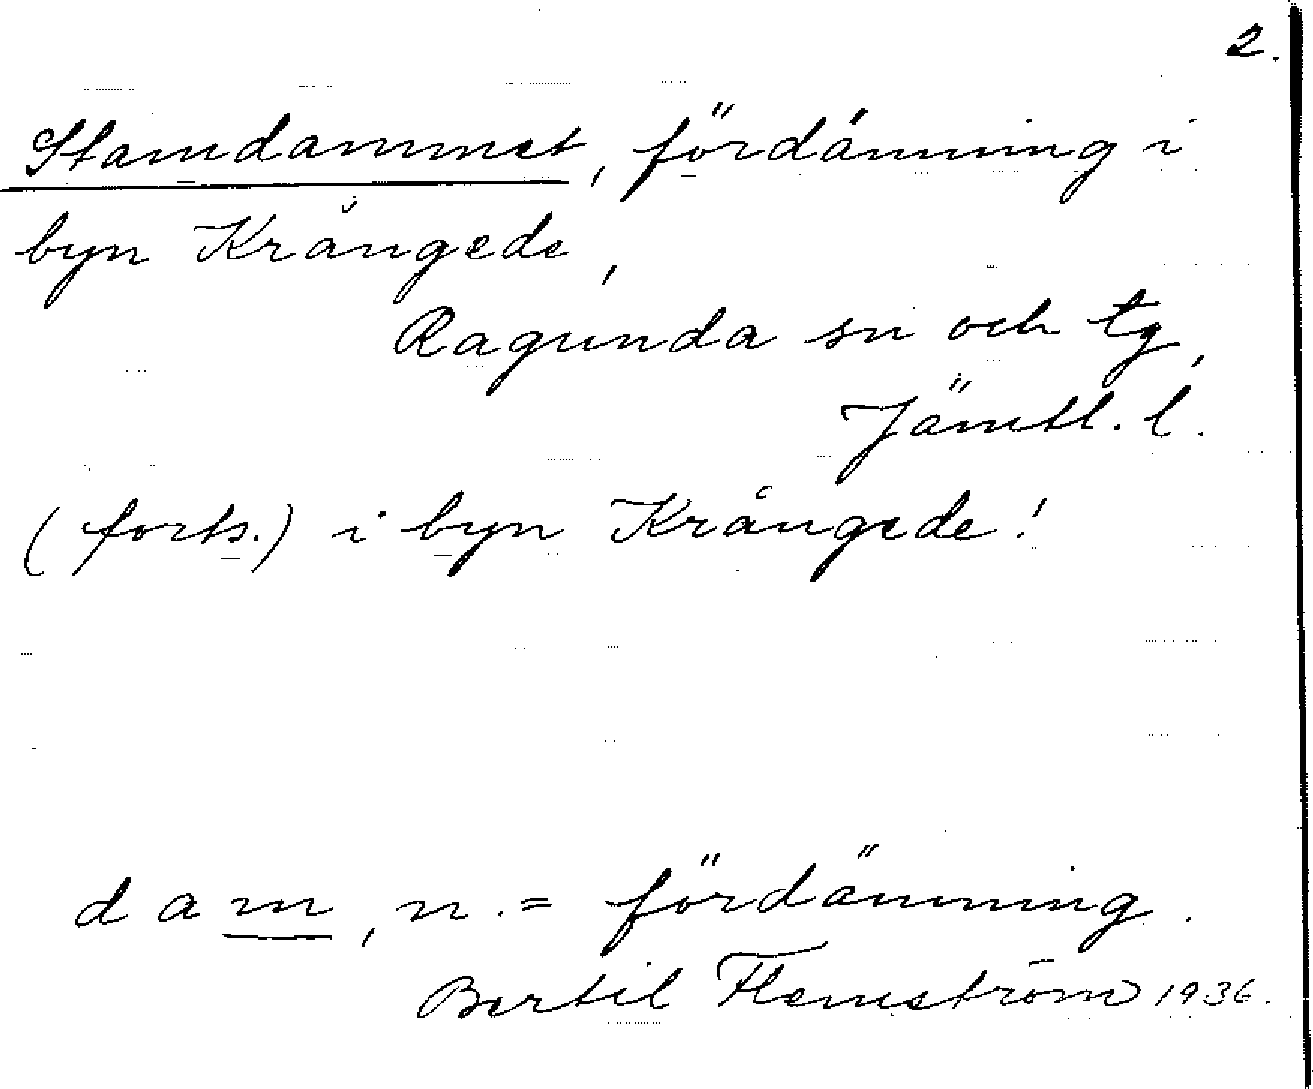 2.
Stamdammet, fördämning i
byn Krångede,
Ragunda sn och tg,
Jämtl. l.
(forts.) i byn Krångede!
dam, n. = fördämning.
Bertil Flemström 1936.